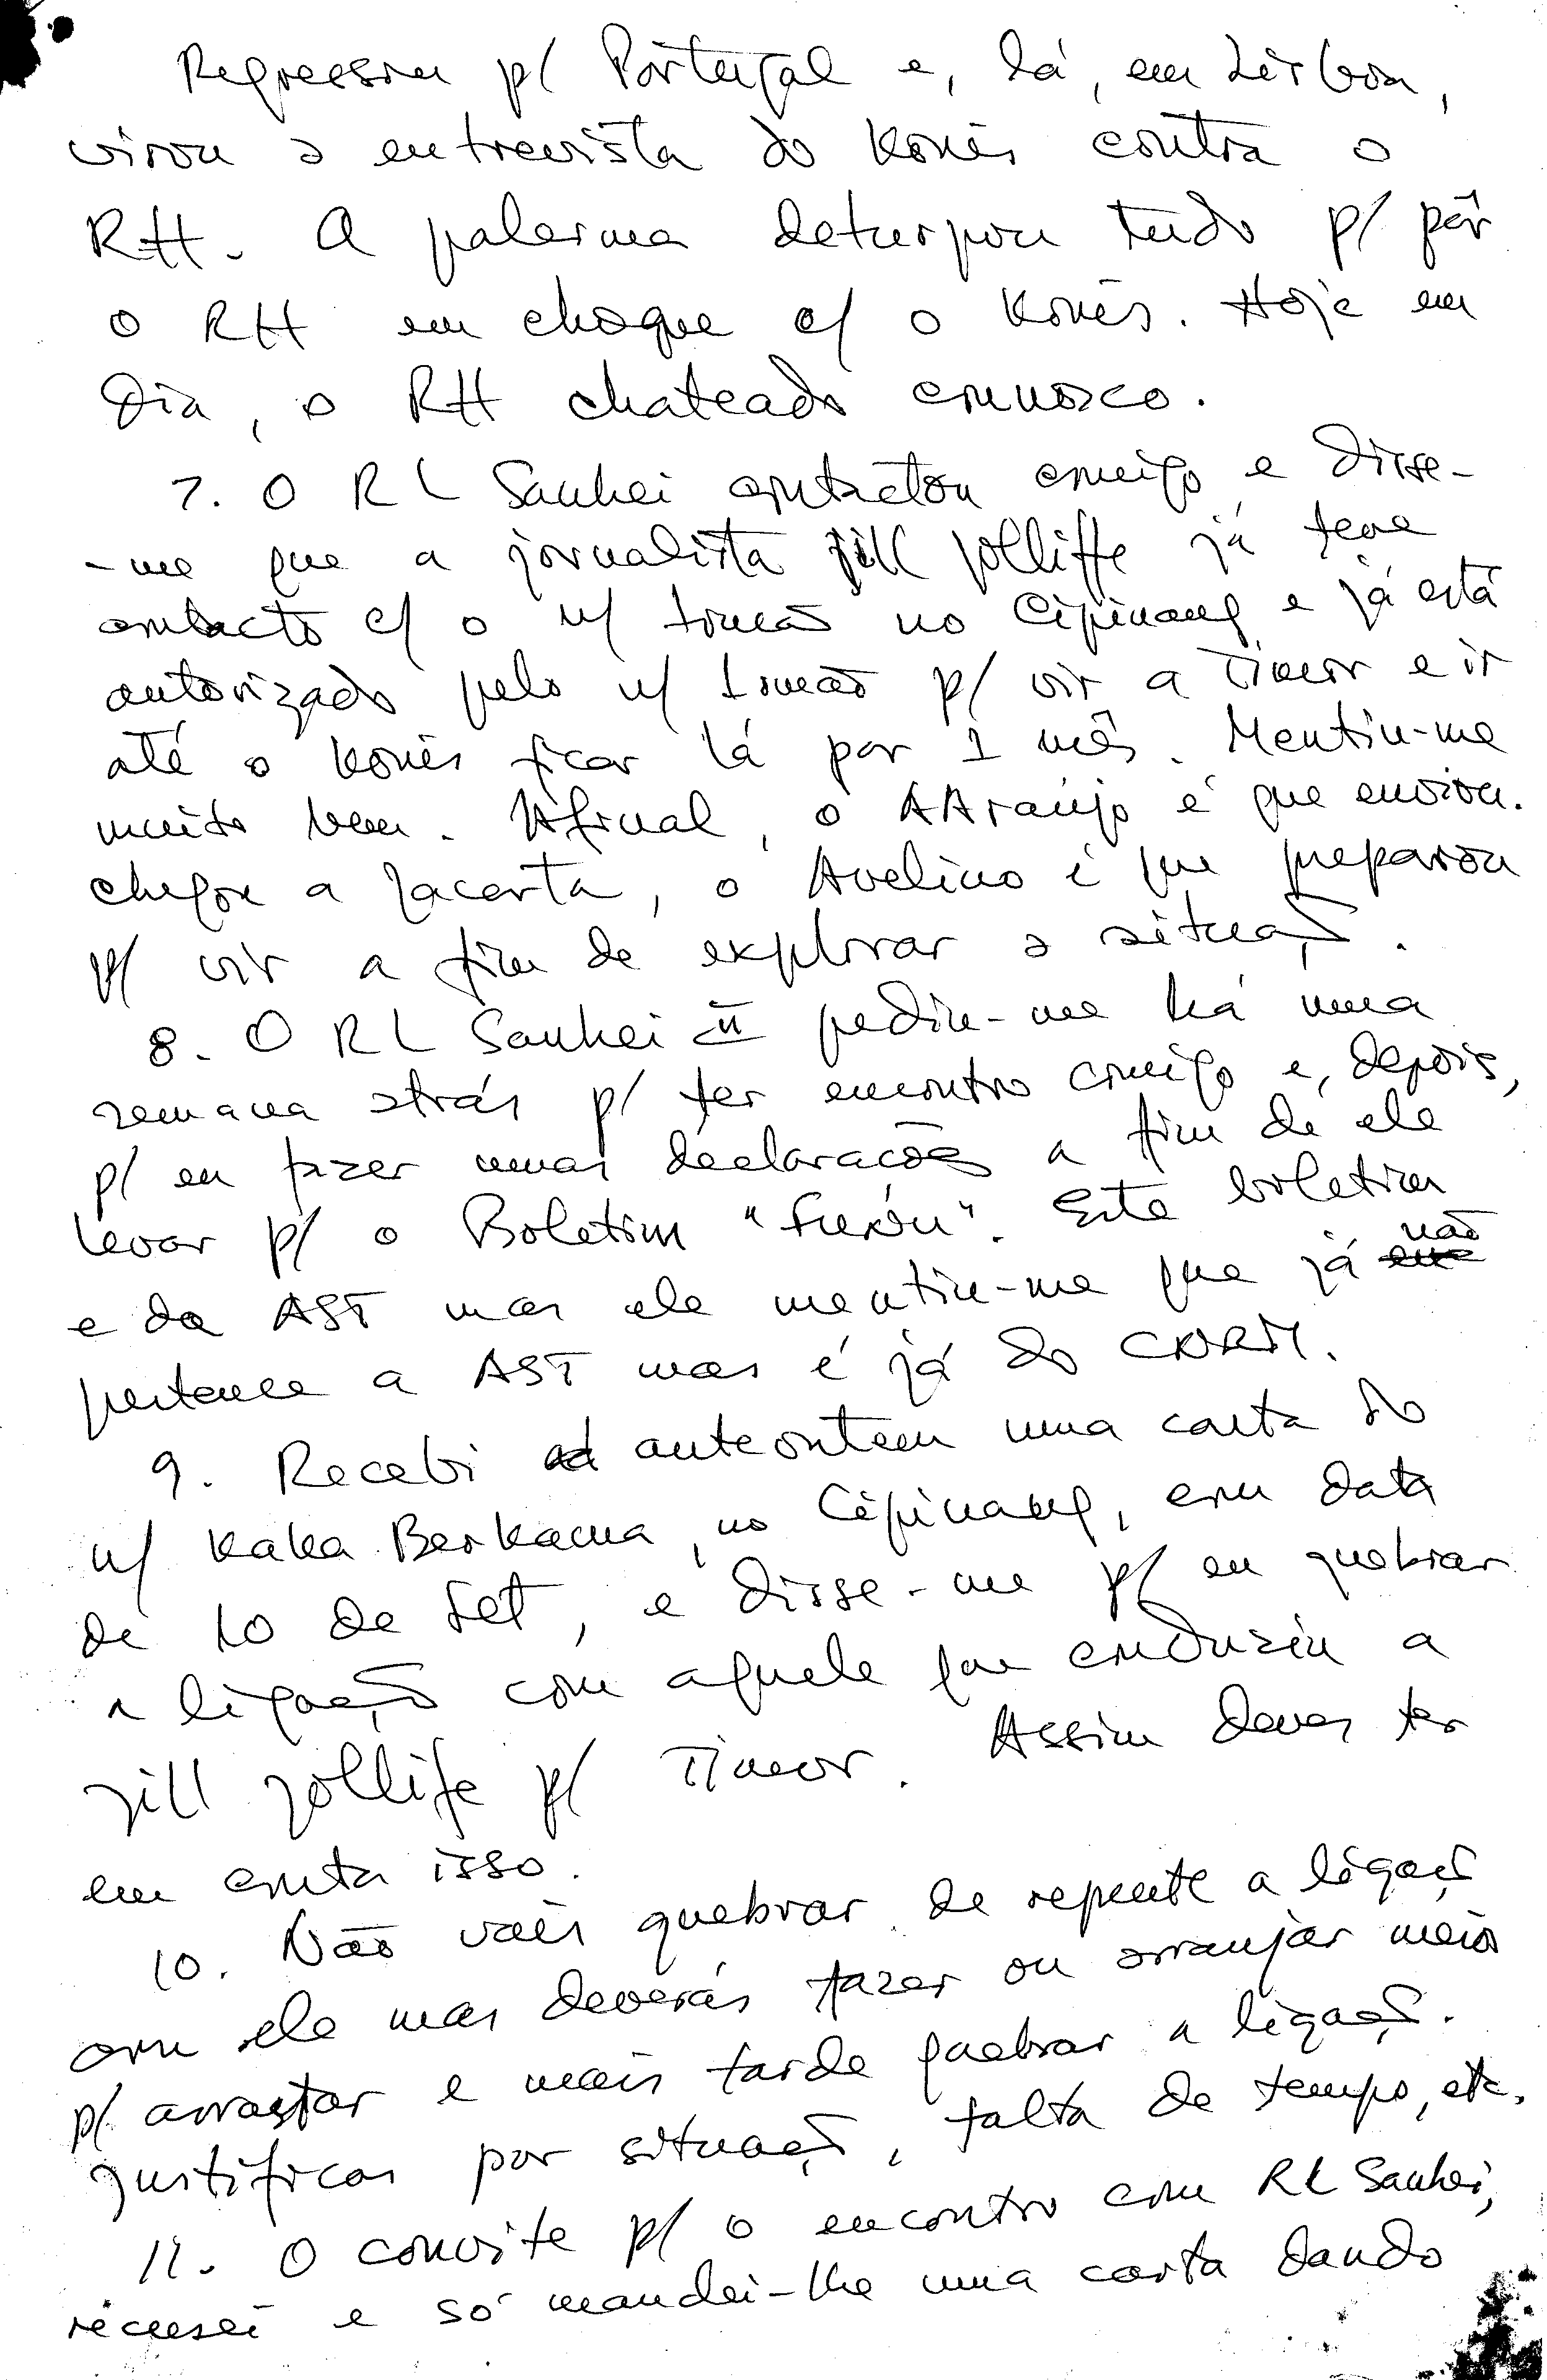 Regressou p/ Portugal e, lá, em Lisboa,
virou a entrevista do Konis contra o
RH. A palerma deturpou tudo p/ pôr
o RH em choque c/ o Konis. Hoje em
dia, o RH chateado connosco.
7. O RL Sanhei contactou comigo e disse-
-me que a jornalista Jill Jolliffe já teve
contacto c/ o n/ Irmão no Cipinang e já está
autorizado pelo n/ Irmão p/ vir a Timor e ir
até o Konis ficar lá por 1 mês. Mentiu-me
muito bem. Afinal, o AAraújo é que enviou.
chegou a Jacarta, o Avelino é que preparou
p/ vir a fim de explorar a situação.
8. O RL Sanhei pediu-me há uma
semana atrás p/ ter encontro comigo e, depois,
p/ eu fazer umas declarações a fim de ele
levar p/ o Boletim "Funu". Este boletim
e da AST mas ele mentiu-me que já não
pertence a AST mas é já do CNRM.
9. Recebi anteontem uma carta do
n/ Kaka Berkama, no Cipinang, com data
de 10 de Set, e disse-me p/ eu quebrar
a ligação com aquele que conduziu a
Jill Jollife p/ Timor. Assim deves ter
em conta isso.
10. Não vais quebrar de repente a ligação
com ele mas deverás fazer ou arranjar meios
p/ arrastar e mais tarde quebrar a ligação.
Justificar por situação, falta de tempo, etc.
11. O convite p/ o encontro com RL Sanhei,
recusei e só mandei-lhe uma carta dando